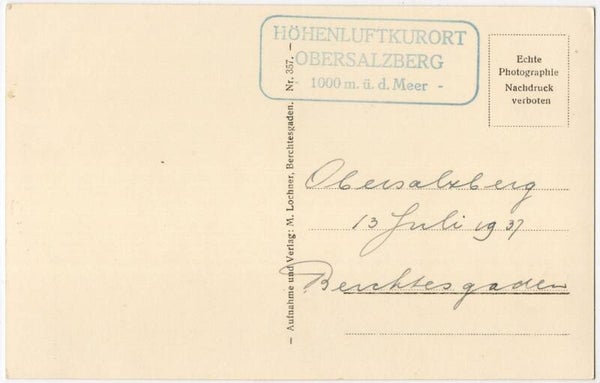 HÖHENLUFTKURORT
OBERSALZBERG
- 1000 m. ü. d. Meer -
Echte
Photographie
Nachdruck
verboten
- Aufnahme und Verlag: M. Lochner, Berchtesgaden. Nr. 357. -
Obersalzberg
13 Juli 1937
Berchtesgaden